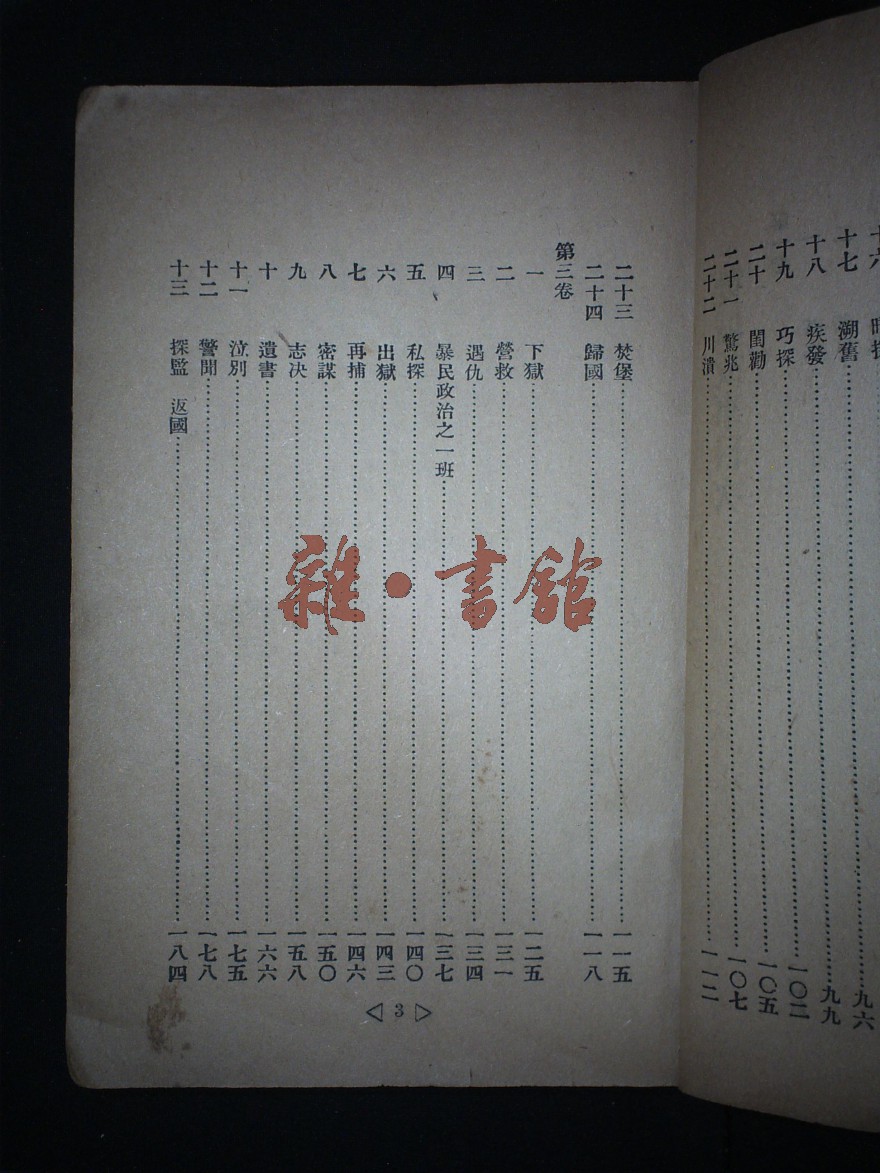 十七 溯舊 九六
十八 疾發 九九
十九 巧探 一〇二
二十 閨勸 一〇五
二十一 驚兆 一〇七
二十二 川潰 一一二
二十三 焚堡 一一五
二十四 歸國 一一八
第三卷
一 下獄 一二五
二 營救 一三一
三 遇仇 一三四
四 暴民政治之一班 一三七
五 私探 一四〇
六 出獄 一四三
七 再捕 一四六
八 密謀 一五〇
九 志决 一五八
十 遺書 一六六
十一 泣別 一七五
十二 警聞 一七八
十三 探監 返國 一八四
3
雜·書館